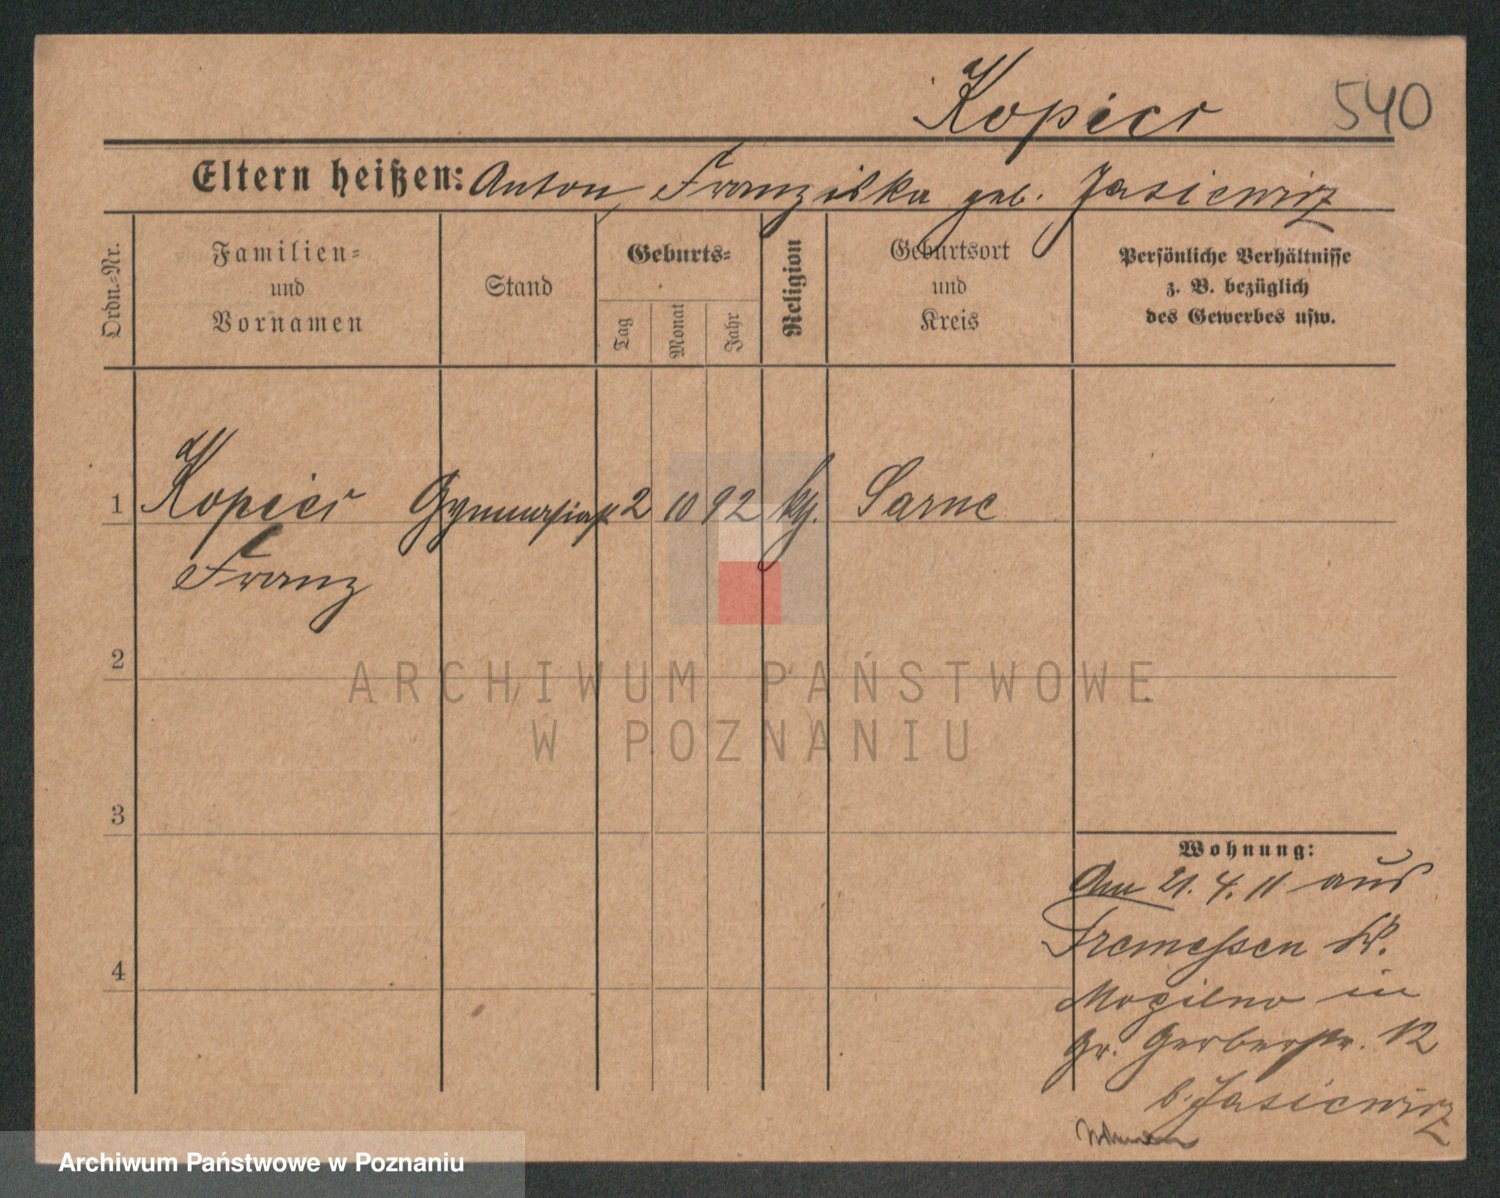 Kopiec 540
Eltern heißen: Anton, Franziska geb. Jasiewicz
Ordn.-Nr.
Familien-
und
Vornamen
Stand
Geburts-
Tag
Monat
Jahr
Religion
Geburtsort
und
Kreis
Persönliche Verhältnisse
z. B. bezüglich
des Gewerbes usw.
1 Kopiec Gymnasiast 2 10 92 kg. Sarne
Franz
2
ARCHIWUM PAŃSTWOWE
W POZNANIU
3
Wohnung:
Am 21. 4. 11 aus
Tremessen Kr.
4
Mogilno in
Gr. Gerberstr. 12
b. Jasiewicz
Archiwum Państwowe w Poznaniu